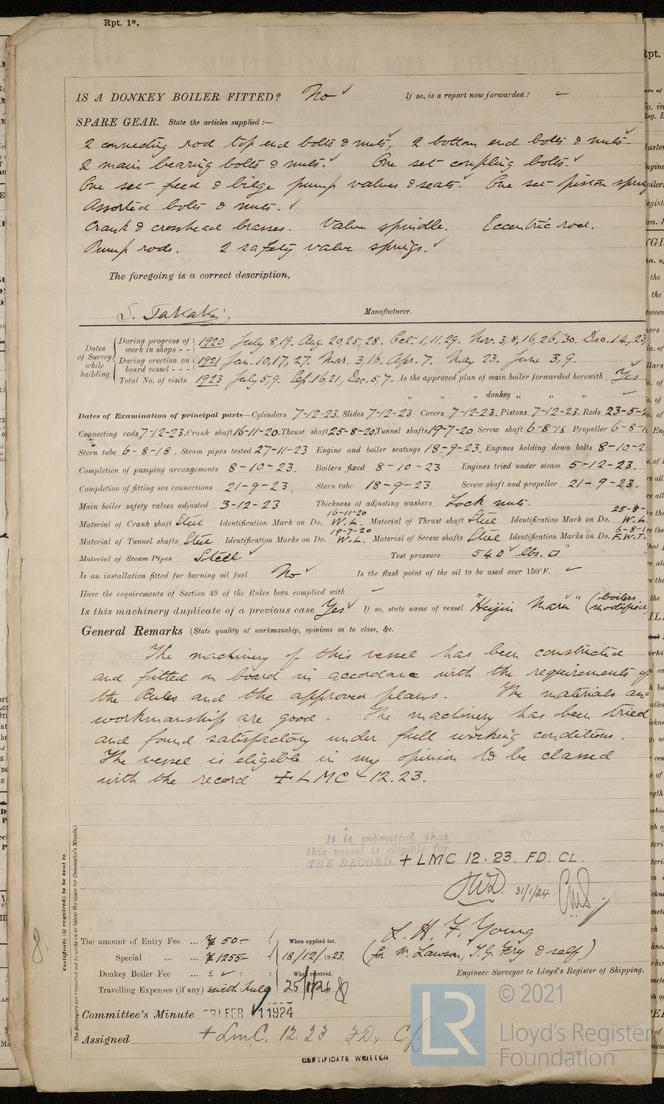 Rpt. 1*.
IS A DONKEY BOILER FITTED? No ✓ If so, is a report now forwarded? –
SPARE GEAR. State the articles supplied :—
2 connecting rod top end bolts & nuts, ✓ 2 bottom end bolts & nuts.
2 main bearing bolts & nuts. ✓ One set coupling bolts. ✓
One set feed & bilge pump valves & seats. ✓ One set piston
Assorted bolts & nuts. ✓
Crank & crosshead brasses. Valve spindle. Eccentric rod.
Pump rods. 2 safety valve springs. ✓
The foregoing is a correct description,
S. Takaki. Manufacturer.
Dates of Survey while building
During progress of work in shops - - 1920 July 8, 19. Aug. 20, 25, 28. Oct. 1, 11, 29. Nov. 3, 8, 16, 26, 30. Dec. 14, 23
During erection on board vessel - - - 1921 Jan. 10, 17, 27. Mar. 3, 16. Apr. 7. May 23. June 3, 9.
Total No. of visits 1923 July 5, 9. Sep. 16, 21, Dec. 5, 7. Is the approved plan of main boiler forwarded herewith Yes
" " " donkey " " " –
Dates of Examination of principal parts—Cylinders 7-12-23. Slides 7-12-23 Covers 7-12-23. Pistons 7-12-23. Rods 23-5-
Connecting rods 7-12-23. Crank shaft 16-11-20. Thrust shaft 25-8-20. Tunnel shafts 19-7-20 Screw shaft 6-8-18 Propeller 6-8-
Stern tube 6-8-18. Steam pipes tested 27-11-23 Engine and boiler seatings 18-9-23. Engines holding down bolts 8-10-2
Completion of pumping arrangements 8-10-23 Boilers fixed 8-10-23 Engines tried under steam 5-12-23.
Completion of fitting sea connections 21-9-23. Stern tube 18-9-23. Screw shaft and propeller 21-9-23.
Main boiler safety valves adjusted 3-12-23 Thickness of adjusting washers Lock nuts.
Material of Crank shaft Steel Identification Mark on Do. 16-11-20 W.L. Material of Thrust shaft Steel Identification Mark on Do. 25-8- W.L.
Material of Tunnel shafts Steel Identification Mark on Do. 19-7-20 W.L. Material of Screw shafts Steel Identification Mark on Do. 6-8-1 F.W.T.
Material of Steam Pipes Steel ✓ Test pressure 540 lbs. □"
Is an installation fitted for burning oil fuel No ✓ Is the flash point of the oil to be used over 150°F. –
Have the requirements of Section 49 of the Rules been complied with –
Is this machinery duplicate of a previous case Yes If so, state name of vessel "Heijin Maru" (boilers modified
General Remarks (State quality of workmanship, opinions as to class, &c.
The machinery of this vessel has been constructed
and fitted on board in accordance with the requirements of
the Rules and the approved plans. The materials and
workmanship are good. The machinery has been tried
and found satisfactory under full working conditions.
The vessel is eligible in my opinion to be classed
with the record +LMC-12.23.
It is submitted that
this vessel is eligible for
THE RECORD. + LMC 12.23. FD. CL.
31/1/24
L. H. F. Young
(for W. Lawson, T. G. Fry & self)
Engineer Surveyor to Lloyd's Register of Shipping.
The amount of Entry Fee ... ¥ 50- : When applied for,
Special ... ¥ 1255- : 18/12/1923.
Donkey Boiler Fee ... £ : When received,
Travelling Expenses (if any) with hull
Committee's Minute FRI FEB 1 1924
Assigned + LMC. 12.23 F.D. CL
CERTIFICATE WRITTEN
Certificate (if required) to be sent to
The Surveyors are requested not to write on or below the space for Committee's Minute.
© 2021
LR
Lloyd's Register
Foundation